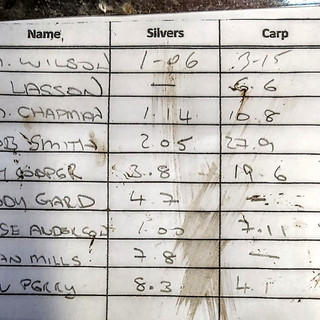 Name Silvers Carp
. WILSON 1-06 3-15
LASSON — 6.6
. CHAPMAN 1.14 10.8
OB SMITH 2.05 27.9
COOPER 3.8 19.6
DDY GARD 4.7 —
SE ANDERSON 1.00 7.11
AN MILLS 7.8 —
PERRY 8.3 4.1